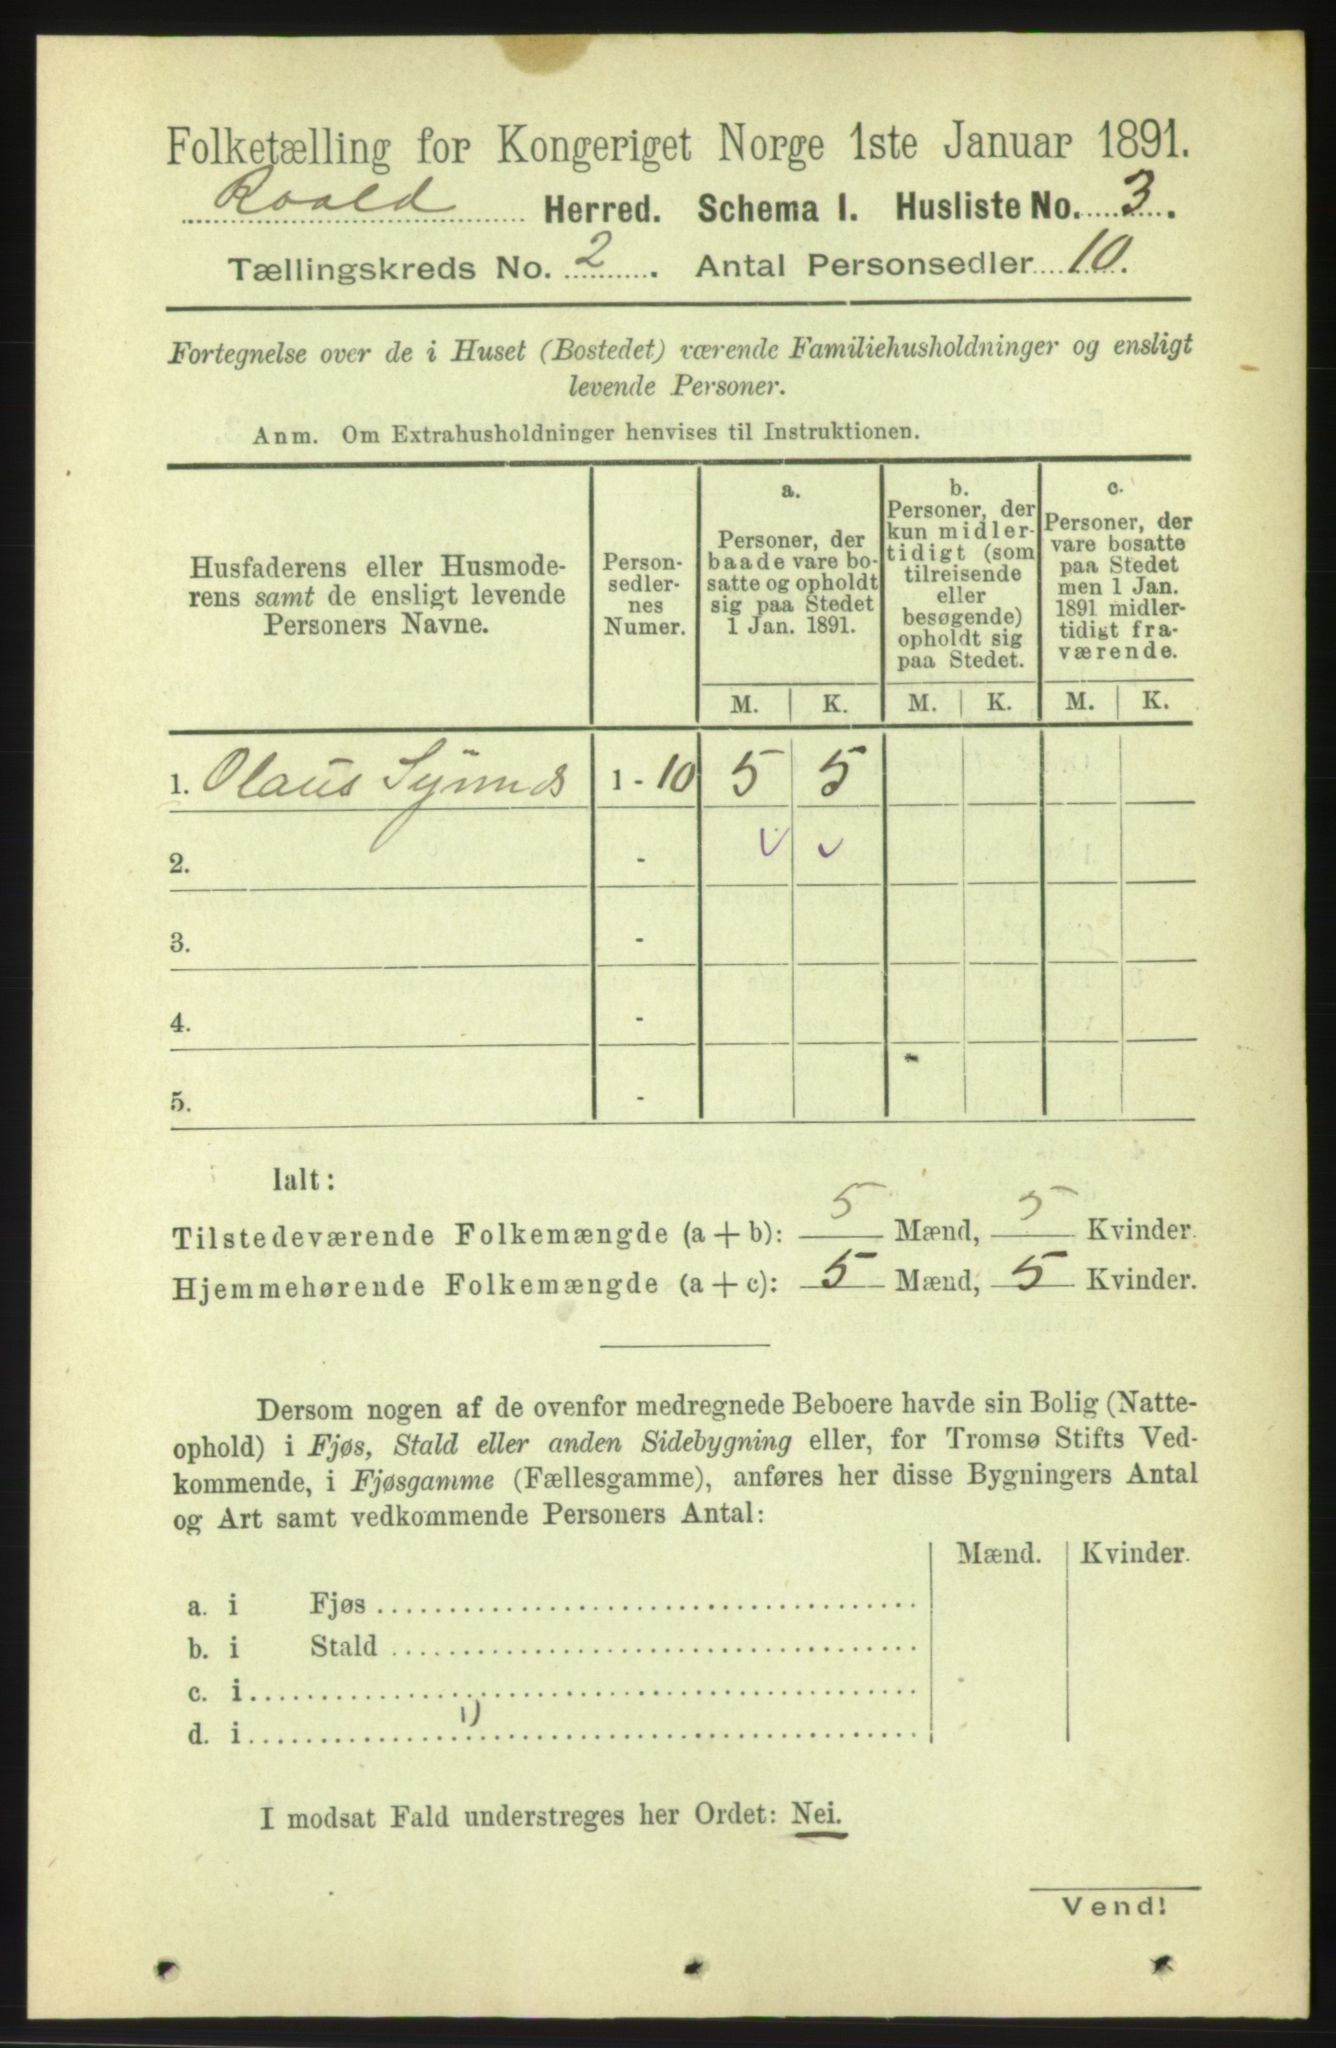 Folketælling for Kongeriget Norge 1ste Januar 1891.
Roald Herred. Schema I. Husliste No. 3.
Tællingskreds No. 2. Antal Personsedler 10.
Fortegnelse over de i Huset (Bostedet) værende Familiehusholdninger og ensligt
levende Personer.
Anm. Om Extrahusholdninger henvises til Instruktionen.
Husfaderens eller Husmode-
rens samt de ensligt levende
Personers Navne.
Person-
sedler-
nes
Numer.
a.
Personer, der
baade vare bo-
satte og opholdt
sig paa Stedet
1 Jan. 1891.
b.
Personer, der
kun midler-
tidigt (som
tilreisende
eller
besøgende)
opholdt sig
paa Stedet.
c.
Personer, der
vare bosatte
paa Stedet
men 1 Jan.
1891 midler-
tidigt fra-
værende.
M. K. M. K. M. K.
1. Olaus 1 - 10 5 5
2. -
3. -
4. -
5. -
Ialt:
Tilstedeværende Folkemængde (a + b): 5 Mænd, 5 Kvinder.
Hjemmehørende Folkemængde (a + c): 5 Mænd, 5 Kvinder.
Dersom nogen af de ovenfor medregnede Beboere havde sin Bolig (Natte-
ophold) i Fjøs, Stald eller anden Sidebygning eller, for Tromsø Stifts Ved-
kommende, i Fjøsgamme (Fællesgamme), anføres her disse Bygningers Antal
og Art samt vedkommende Personers Antal:
Mænd. Kvinder.
a. i Fjøs
b. i Stald
c. i
d. i
I modsat Fald understreges her Ordet: Nei.
Vend!